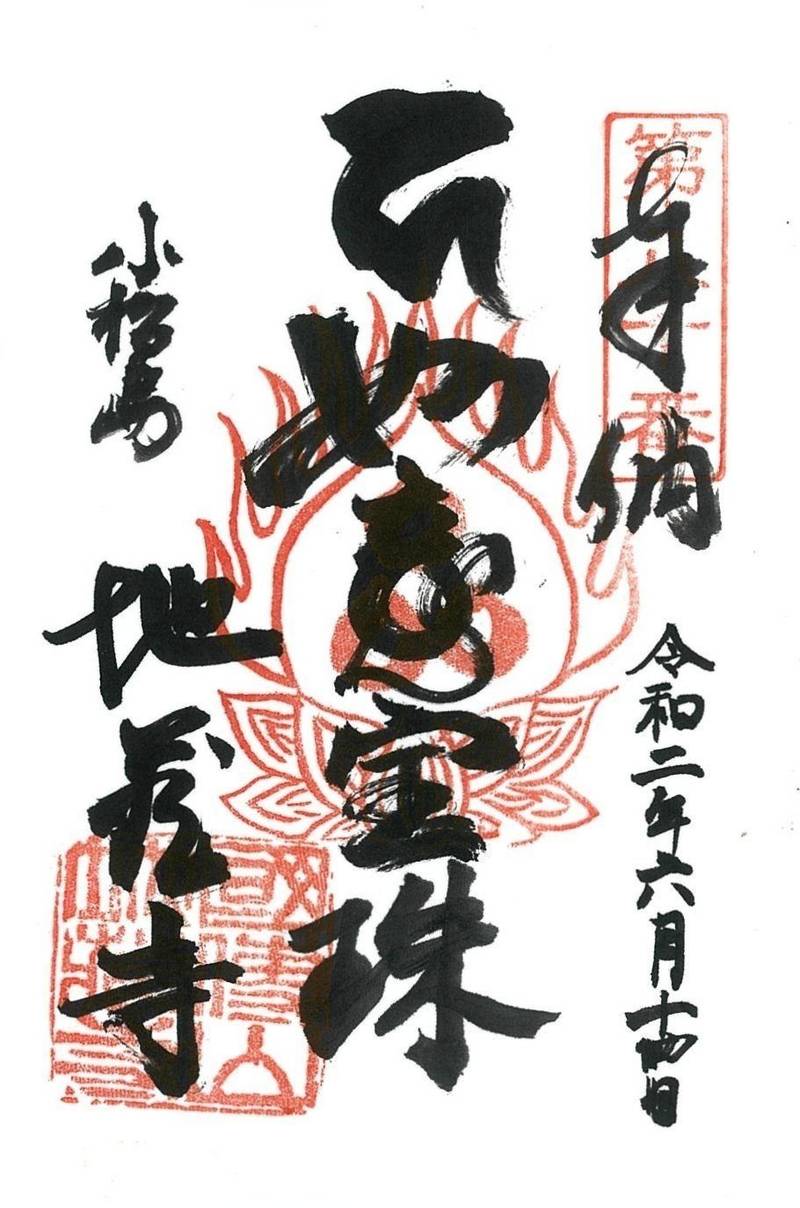 奉納
令和二年六月十四日
如意宝珠
小松島
地蔵寺